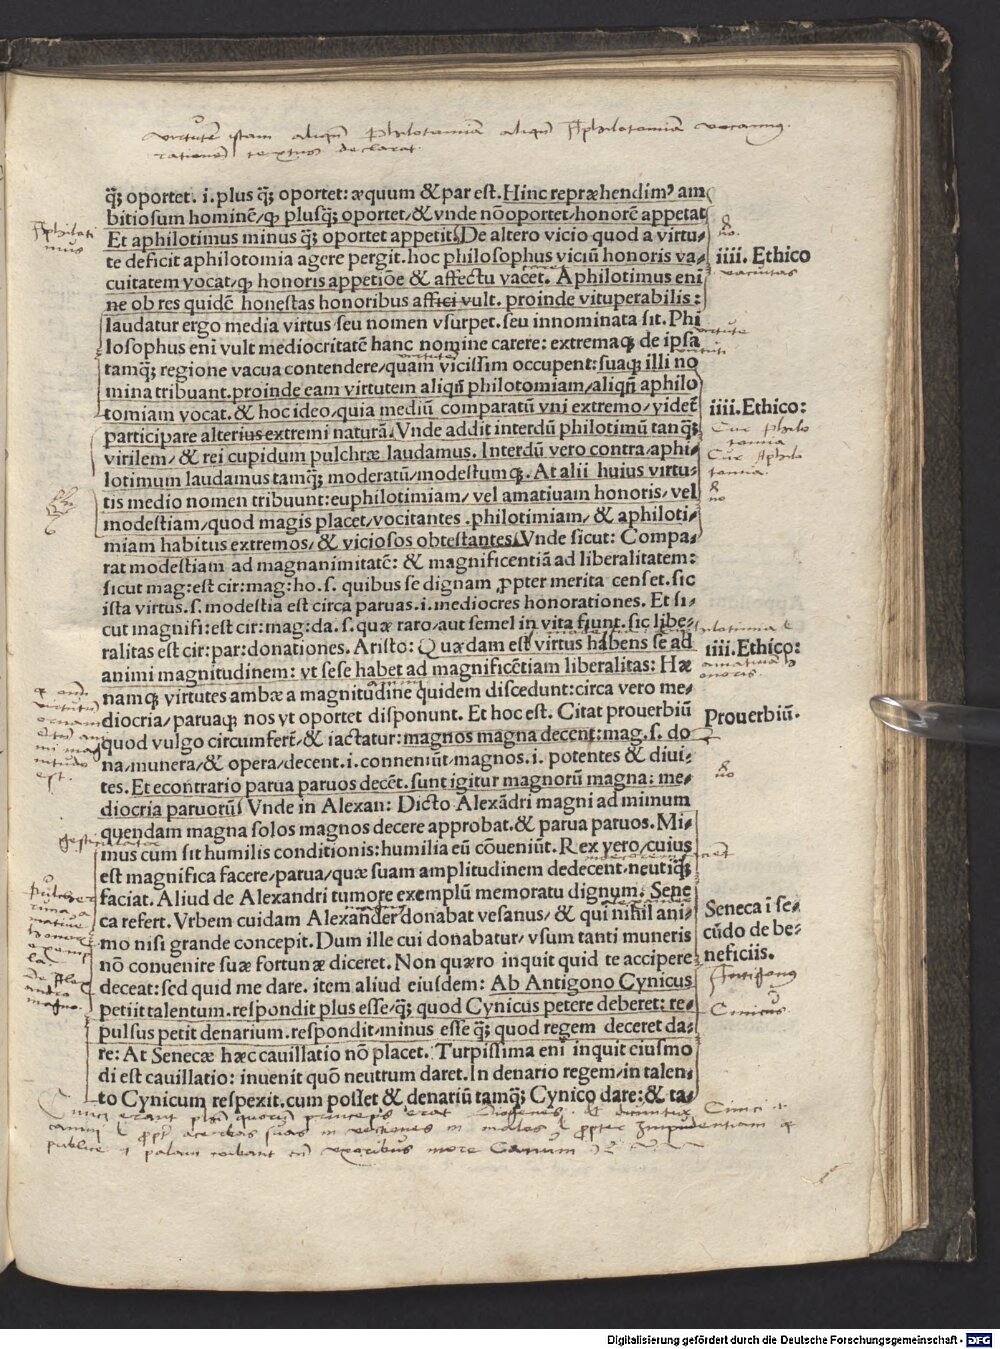 virtutē istam aliqn̄ philotamiā aliqn̄ Aphilotomiā vocamus.
rationē textus declarat.
q̄ꝫ oportet. i. plus q̄ꝫ oportet: æquum & par est. Hinc repræhendimꝰ am
bitiosum hominē/ꝙ plusq̄ꝫ oportet/& vnde nō oportet/honorē appetat
Et aphilotimus minus q̄ꝫ oportet appetit. De altero vicio quod a virtu⸗
te deficit aphilotomia agere pergit. hoc philosophus viciū honoris va⸗
cuitatem vocat/ꝙ honoris appetiōe & affectu vacet. Aphilotimus eni
ne ob res quidē honestas honoribus affici vult. proinde vituperabilis:
laudatur ergo media virtus seu nomen vsurpet. seu innominata sit. Phi
losophus eni vult mediocritatē hanc nomine carere: extremaqꝫ de ipsa
tamq̄ꝫ regione vacua contendere/quam vicissim occupent: suaqꝫ illi no
mina tribuant. proinde eam virtutem aliqñ philotomiam/aliqñ aphilo
tomiam vocat. & hoc ideo/quia mediū comparatū vni extremo/videt̄
participare alterius extremi naturā. Vnde addit interdū philotimū tanq̄ꝫ
virilem/& rei cupidum pulchræ laudamus. Interdū vero contra/aphi⸗
lotimum laudamus tamq̄ꝫ moderatū/modestumqꝫ. At alii huius virtu⸗
tis medio nomen tribuunt: euphilotimiam/ vel amatiuam honoris/ vel
modestiam/quod magis placet/vocitantes. philotimiam/ & aphiloti⸗
miam habitus extremos/& viciosos obtestantes. Vnde sicut: Compa⸗
rat modestiam ad magnanimitatē: & magnificentiā ad liberalitatem:
sicut mag: est cir: mag: ho. s. quibus se dignam ꝓpter merita censet. sic
ista virtus. s. modestia est circa paruas. i. mediocres honorationes. Et si⸗
cut magnifi: est cir: mag: da. s. quæ raro/aut semel in vita fiunt. sic libe⸗
ralitas est cir: par: donationes. Aristo: Quædam est virtus habens se ad
animi magnitudinem: vt sese habet ad magnificētiam liberalitas: Hæ
namqꝫ virtutes ambæ a magnitudine quidem discedunt: circa vero me⸗
diocria/ paruaqꝫ nos vt oportet disponunt. Et hoc est. Citat prouerbiū
quod vulgo circumfert̄/& iactatur: magnos magna decent: mag. s. do
na/munera/& opera/decent. i. conneniūt/magnos. i. potentes & diui⸗
tes. Et econtrario parua paruos decēt. sunt igitur magnorū magna: me⸗
diocria paruorū. Vnde in Alexan: Dicto Alexādri magni ad mimum
quendam magna solos magnos decere approbat. & parua paruos. Mi⸗
mus cum sit humilis conditionis: humilia eū cōueniūt. Rex vero/cuius
est magnifica facere/parua/quæ suam amplitudinem dedecent/neutiq̄ꝫ
faciat. Aliud de Alexandri tumore exemplū memoratu dignum. Sene
ca refert. Vrbem cuidam Alexander donabat vesanus/ & qui nihil ani⸗
mo nisi grande concepit. Dum ille cui donabatur/ vsum tanti muneris
nō conuenire suæ fortunæ diceret. Non quæro inquit quid te accipere
deceat: sed quid me dare. item aliud eiusdem: Ab Antigono Cynicus
petiit talentum. respondit plus esse/q̄ꝫ quod Cynicus petere deberet: re⸗
pulsus petit denarium. respondit/minus esse q̄ꝫ quod regem deceret da⸗
re: At Senecæ hæc cauillatio nō placet. Turpissima eni inquit eiusmo
di est cauillatio: inuenit quō neutrum daret. In denario regem/in talen⸗
to Cynicum respexit. cum posset & denariū tamq̄ꝫ Cynico dare: & ta⸗
iiii. Ethico
vacuitas
iiii. Ethico:
Cur philo
tomia
Cur Aphilo
tomia.
iiii. Ethico:
amatiua
honoris.
Prouerbiū.
Seneca ī se⸗
cūdo de be⸗
neficiis.
Antigonus
Cinicus
Aphiloti
mus
magnitudo
est.
Cinici erant phi quorum princeps erat Diogenes. & dicuntur Cinici
publice & palam coibant cū vxoribus more Canum
Digitalisierung gefördert durch die Deutsche Forschungsgemeinschaft - DFG